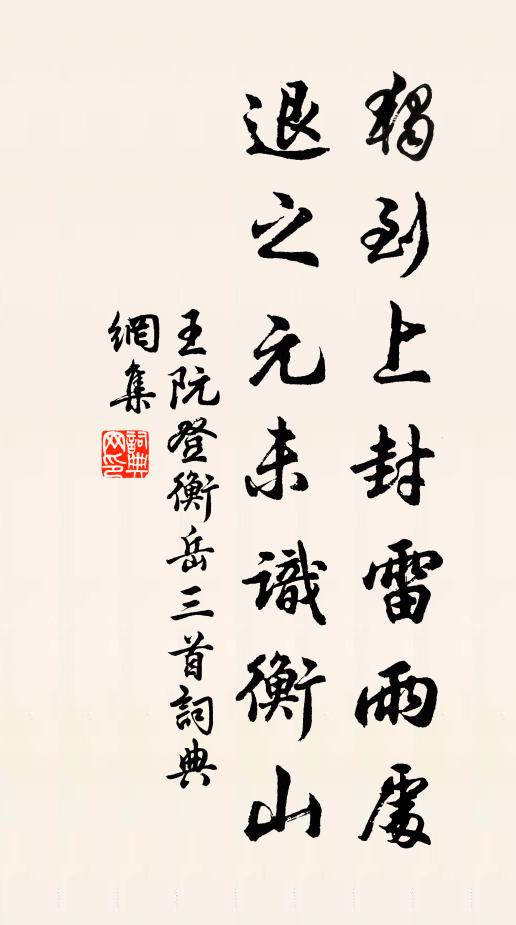 獨到上封雷雨處
退之元未識衡山
王阮登衡岳三首詞典
網集
詞典
网印